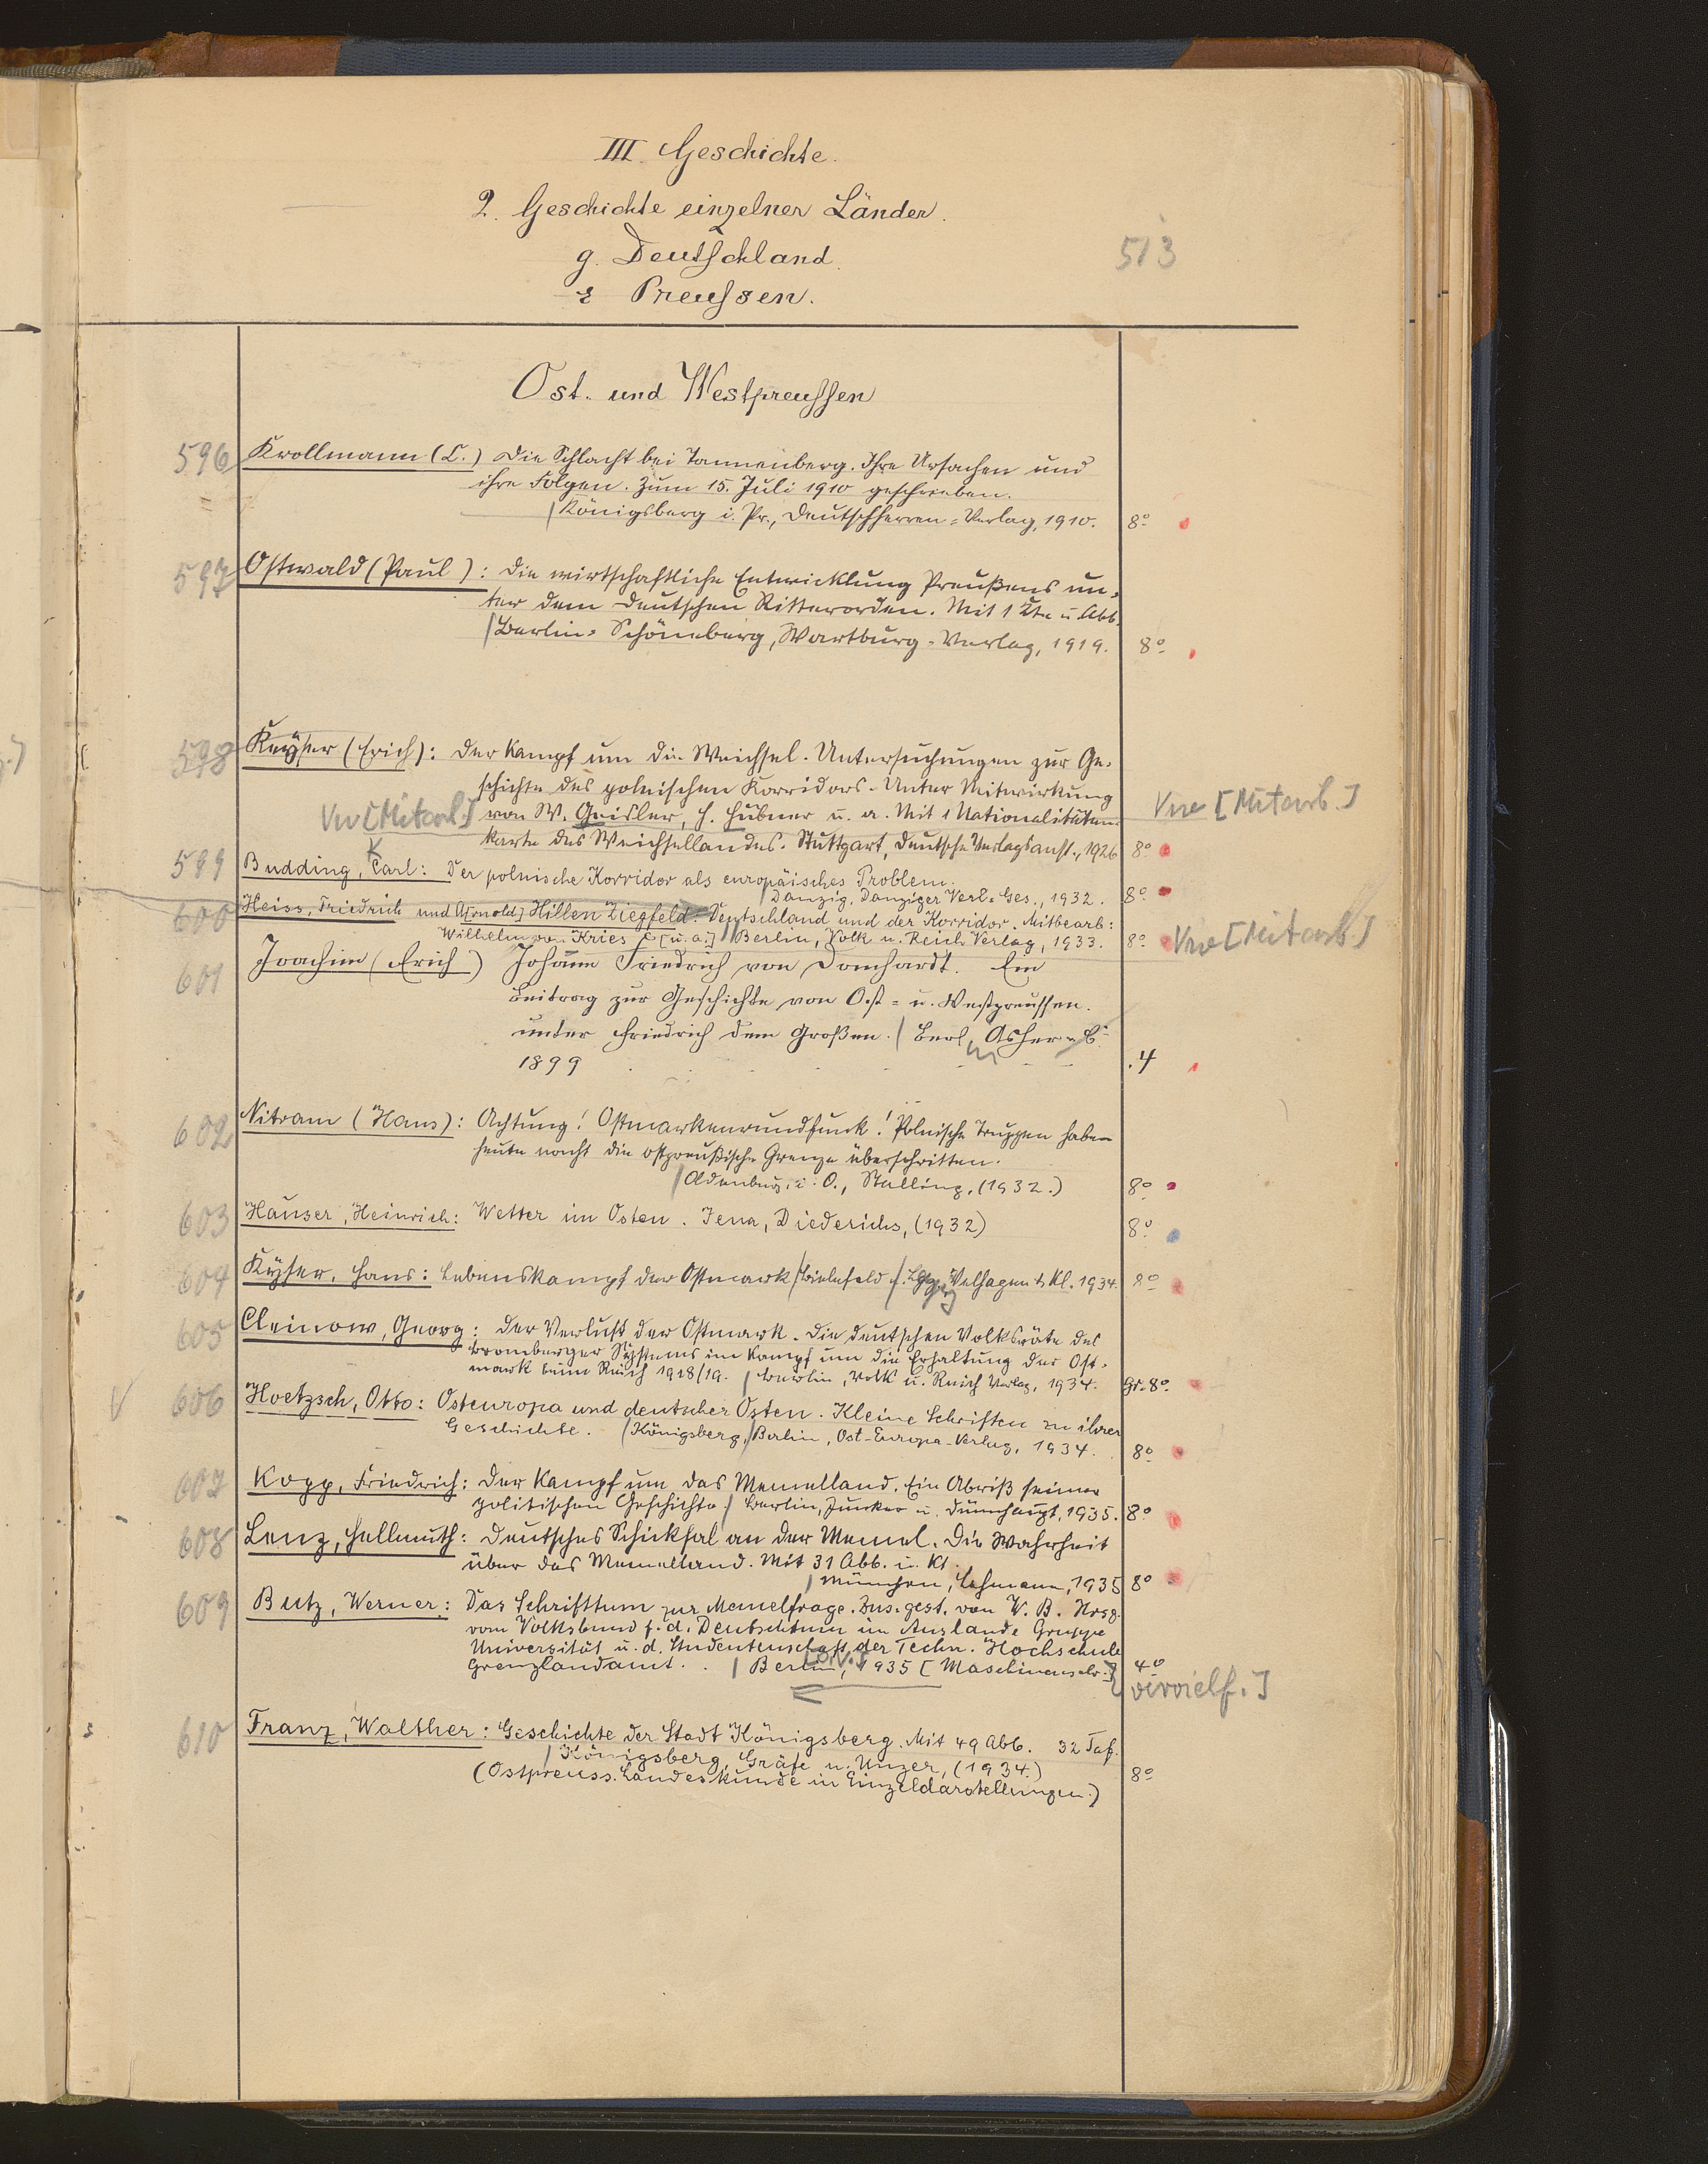 III. Geschichte.
2. Geschichte einzelner Länder.
g. Deutschland.
Preussen.
513
Ost- und Westpreussen
596 Krollmann (C.) Die Schlacht bei Tannenberg. Ihre Ursachen und
ihre Folgen. Zum 15. Juli 1910 geschrieben.
Königsberg i. Pr., Deutschherren=Verlag, 1910. 8°
597 Ostwald (Paul): Die wirtschaftliche Entwicklung Preußens un-
ter dem Deutschen Ritterorden. Mit 1 Kte u. Abb.
Berlin=Schöneberg, Wartburg-Verlag, 1919. 8°
598 Keyser (Erich): Der Kampf um die Weichsel. Untersuchungen zur Ge-
schichte des polnischen Korridors. Unter Mitwirkung
von W. Geisler, H. Hübner u. a. Mit 1 Nationalitäten-
karte des Weichsellandes. Stuttgart, Deutsche Verlagsanst., 1926 8°
[Mitarb.]
[Mitarb.]
599 Budding, Carl: Der polnische Korridor als europäisches Problem.
K
Danzig, Danziger Verl.-Ges., 1932. 8°
600 Heiss, Friedrich und A[rnold] Hillen Ziegfeld: Deutschland und der Korridor. Mitbearb:
Wilhelm von Kries [u. a.] Berlin, Volk u. Reich Verlag, 1933. 8°
[Mitarb.]
601 Joachim (Erich) Johann Friedrich von Domhardt. Ein
Beitrag zur Geschichte von Ost= u. Westpreussen.
unter Friedrich dem Großen. Berl, Asher u. C°
1899 4
602 Nitram (Hans): Achtung! Ostmarkenrundfunk! Polnische Truppen haben
heute nacht die ostpreußische Grenze überschritten.
Oldenburg i. O., Stalling, (1932.) 8°
603 Hauser, Heinrich: Wetter im Osten. Jena, Diederichs, (1932) 8°
604 Kyser, Hans: Lebenskampf der Ostmark Bielefeld u. Lpzg Velhagen & Kl. 1934. 8°
605 Cleinow, Georg: Der Verlust der Ostmark. Die deutschen Volksräte des
Bromberger Systems im Kampf um die Erhaltung der Ost-
mark beim Reich 1918/19. Berlin, Volk u. Reich Verlag, 1934. Gr. 8°
606 Hoetzsch, Otto: Osteuropa und deutscher Osten. Kleine Schriften zu ihrer
Geschichte. Königsberg, Berlin, Ost-Europa-Verlag, 1934. 8°
607 Kopp, Friedrich: Der Kampf um das Memelland. Ein Abriß seiner
politischen Geschichte. Berlin, Junker u. Dünnhaupt, 1935. 8°
608 Lenz, Hellmuth: Deutsches Schicksal an der Memel. Die Wahrheit
über das Memelland. Mit 31 Abb. u. Kt.
München, Lehmann, 1935 8°
609 Butz, Werner: Das Schrifttum zur Memelfrage. Zus.gest. von W. B. Hrsg.
vom Volksbund f. d. Deutschtum im Auslande Gruppe
Universität u. d. Studentenschaft der Techn. Hochschule
Grenzlandamt. Berlin, 1935 [Maschinenschr.] 4°
vervielf.]
610 Franz, Walther: Geschichte der Stadt Königsberg. Mit 49 Abb. 32 Taf.
Königsberg, Gräfe u. Unzer, (1934.) 8°
(Ostpreuss. Landeskunde in Einzeldarstellungen.)